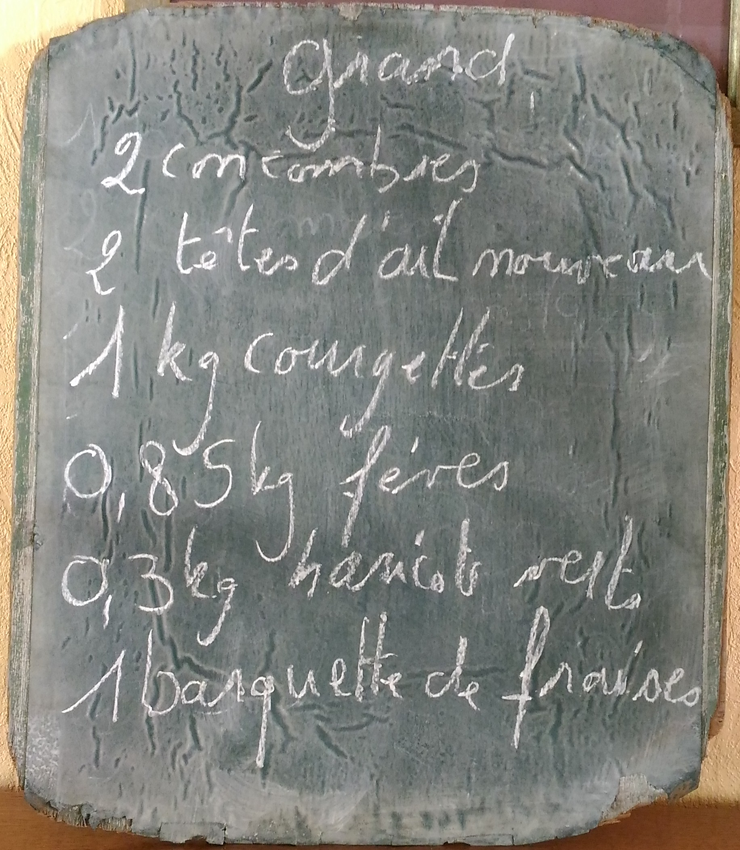 Grand
2 concombres
2 têtes d'ail nouveau
1 kg courgettes
0,85kg fèves
0,3kg haricots verts
1 barquette de fraises